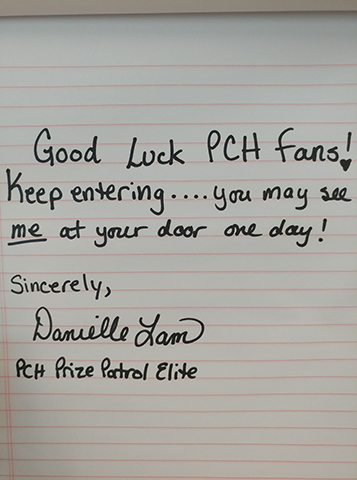 Good Luck PCH fans!
Keep entering....you may see
me at your door one day!
Sincerely,
Danielle Lam
PCH Prize Patrol Elite